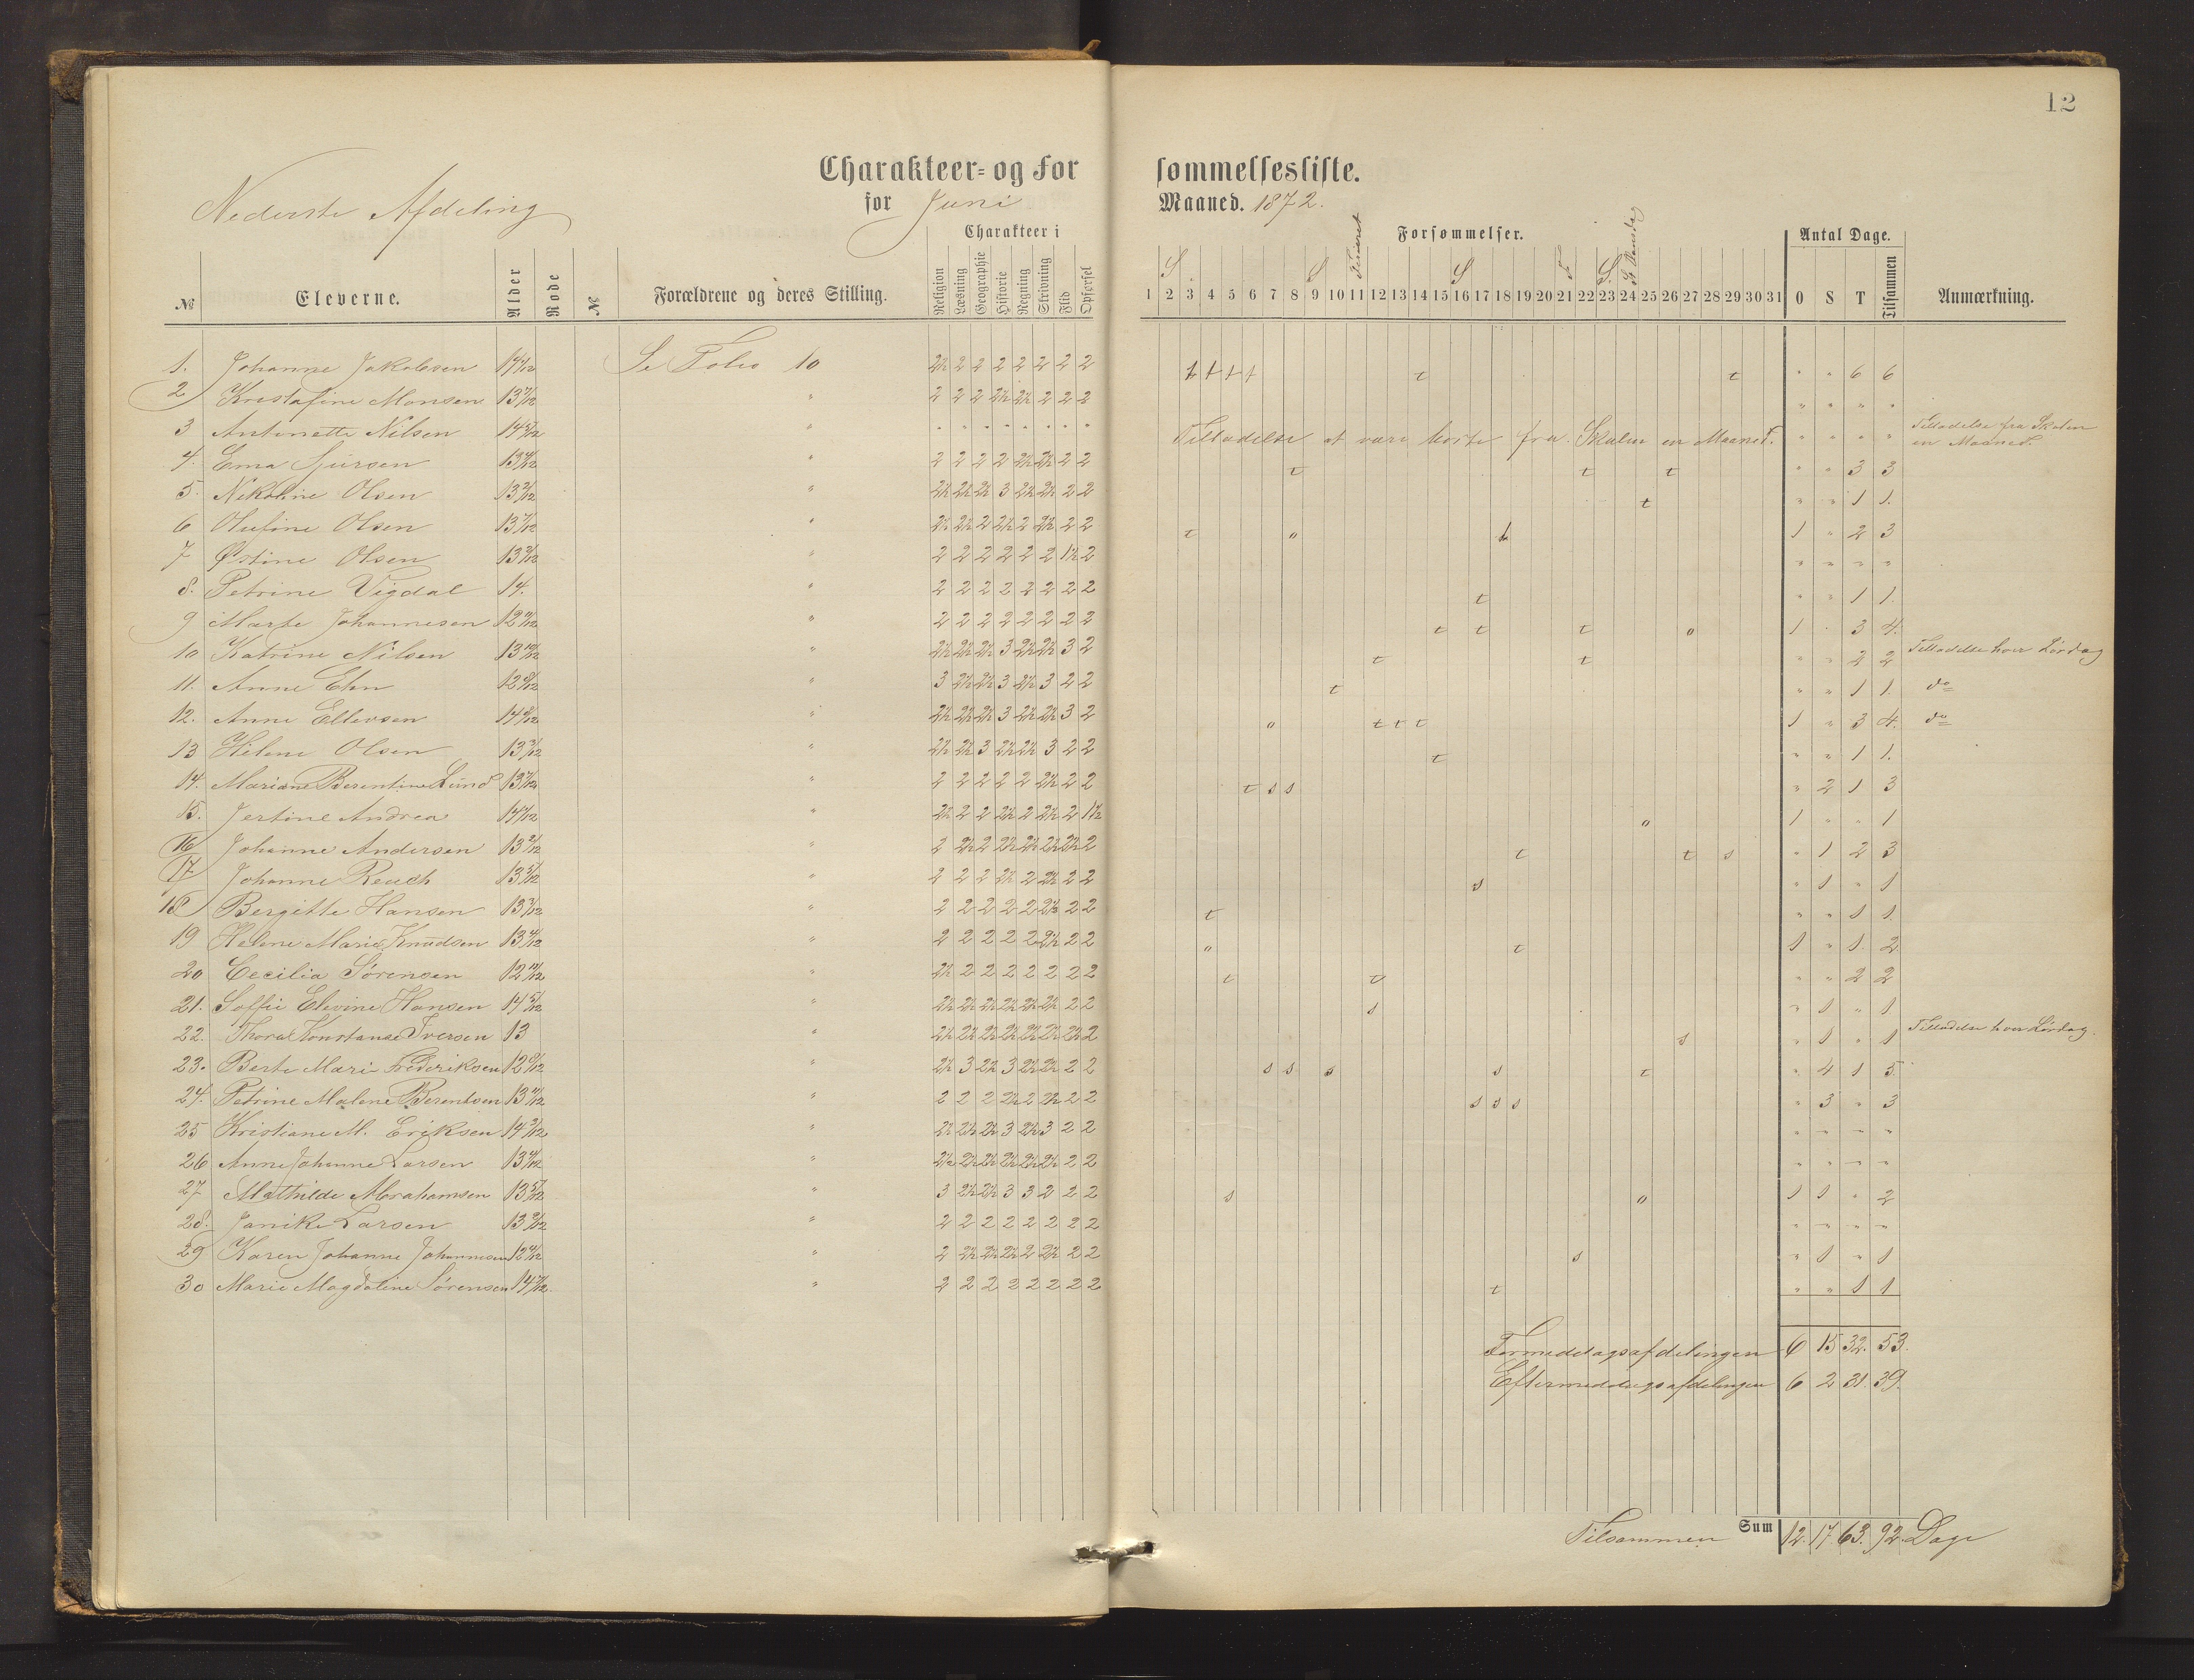 12
Charakteer- og Forsømmelsesliste.
Nederste Afdeling
for Juni Maaned. 1872.
Charakteer i
Forsømmelser.
Antal Dage.
№ Eleverne. Alder Rode № Forældrene og deres Stilling. Religion Læsning Geographie Historie Regning Skrivning Flid Opførsel 1 2 3 4 5 6 7 8 9 10 11 12 13 14 15 16 17 18 19 20 21 22 23 24 25 26 27 28 29 30 31 O S T Tilsammen Anmærkning.
1. Johanne Jakobsen Se Folio 10 2½ 2 2 2 2 2 2 2 t t t t t t " " 6 6
2 Kristafine Monsen 13 " 2 2 2 2½ 2½ 2 2 2 " " " "
3 Antonette Nilsen 14 " Tilladelse at være borte fra Skolen en Maaned. " " " " Tilladelse fra Skolen en Maaned.
4. Ema Sjursen 13 " 2 2 2 2 2½ 2½ 2 2 t t t " " 3 3
5. Nikoline Olsen 13 " 2½ 2½ 2½ 3 2½ 2½ 2 2 t " " 1 1.
6 Olufine Olsen 13 " 2½ 2½ 2 2½ 2 2½ 2 2 t o t 1 " 2 3
7 Østine Olsen 13 " 2 2 2 2 2 2 1½ 2 " " " "
8. Petrine Vigdal 14. " 2 2 2 2 2 2 2 2 t " " 1 1.
9 Marte Johannesen 12 " 2 2 2 2 2 2 2 2 t t t o 1 " 3 4.
10 Katrine Nilsen 13 " 2½ 2½ 2½ 3 2½ 2½ 3 2 t t " " 2 2 Tilladelse hver Lørdag
11. Anne Ehn 12 " 3 2½ 2½ 3 2½ 3 2 2 t " " 1 1. do
12. Anne Ellevsen 14 " 2½ 2½ 2½ 3 2½ 2½ 3 2 o t t t 1 " 3 4. do
13 Helene Olsen 13 " 2½ 2½ 3 2½ 2½ 3 2 2 t " " 1 1.
14. Mariane Berentine Lund 13 " 2 2 2 2 2 2½ 2 2 t s s " 2 1 3
15. Jertine Andrea 14 " 2½ 2 2 2½ 2 2½ 2 1½ o 1 " " 1
16 Johanne Andersen 13 " 2 2½ 2 2½ 2½ 2½ 2½ 2 t t s " 1 2 3
17 Johanne Reuch 13 " 2 2 2 2½ 2 2½ 2 2 s " 1 " 1
18 Bergitte Hansen 13 " 2 2 2 2 2 2½ 2 2 t " " 1 1.
19 Helene Marie Knudsen 13 " 2 2 2 2 2 2½ 2 2 o t 1 " 1. 2
20 Cecilia Sørensen 12 " 2½ 2 2 2 2 2 2 2 t t " " 2 2
21. Soffie Elevine Hansen 14 " 2½ 2½ 2½ 2½ 2½ 2½ 2 2 s " 1 " 1.
22. Thora Konstanse Iversen 13 " 2½ 2½ 2½ 2½ 2½ 2½ 2½ 2 s " 1 " 1 Tilladelse hver Lørdag.
23. Berte Mari Frederiksen 12 " 2½ 3 2½ 3 2½ 2½ 2 2 s s s s t " 4 1 5
24. Petrine Malene Berentsen 13 " 2 2 2 2½ 2 2½ 2 2 s s s " 3 " 3
25 Kristiane M. Eriksen 14 " 2½ 2½ 2½ 3 2½ 3 2 2 " " " "
26 Anne Johanne Larsen 13 " 2½ 2½ 2½ 2½ 2½ 2½ 2 2 " " " "
27 Mathilde Abrahamsen 13 " 3 2½ 2½ 3 3 2 2 2 s o 1 1 " 2
28. Janike Larsen 13 " 2 2 2 2 2 2 2 2 " " " "
29 Karen Johanne Johannesen 12 " 2 2½ 2½ 2½ 2 2½ 2 2 s " 1 " 1
30 Marie Magdaline Sørensen 14 " 2 2 2 2 2 2 2 2 t " " 1 1
Formiddagsafdelingen 6 15 32. 53.
Eftermiddagsafdelingen 6 2 31. 39.
Tilsammen Sum 12. 17. 63. 92. Dage